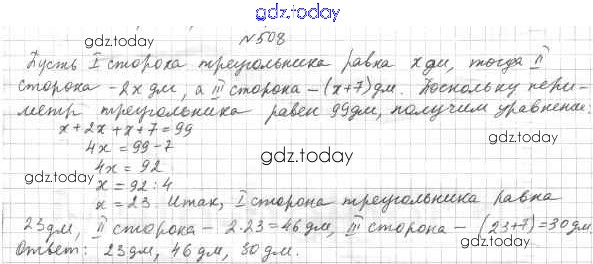 gdz.today
№508
gdz.today
Пусть I сторона треугольника равна x дм, тогда II
сторона - 2x дм, а III сторона - (x+7) дм. Поскольку пери-
метр треугольника равен 99 дм, получим уравнение:
x + 2x + x + 7 = 99
gdz.today
4x = 99 - 7
gdz.today
4x = 92
x = 92 : 4
x = 23. Итак, I сторона треугольника равна
23 дм, II сторона - 2·23 = 46 дм, III сторона - (23+7) = 30 дм.
gdz.today
gdz.today
Ответ: 23 дм, 46 дм, 30 дм.